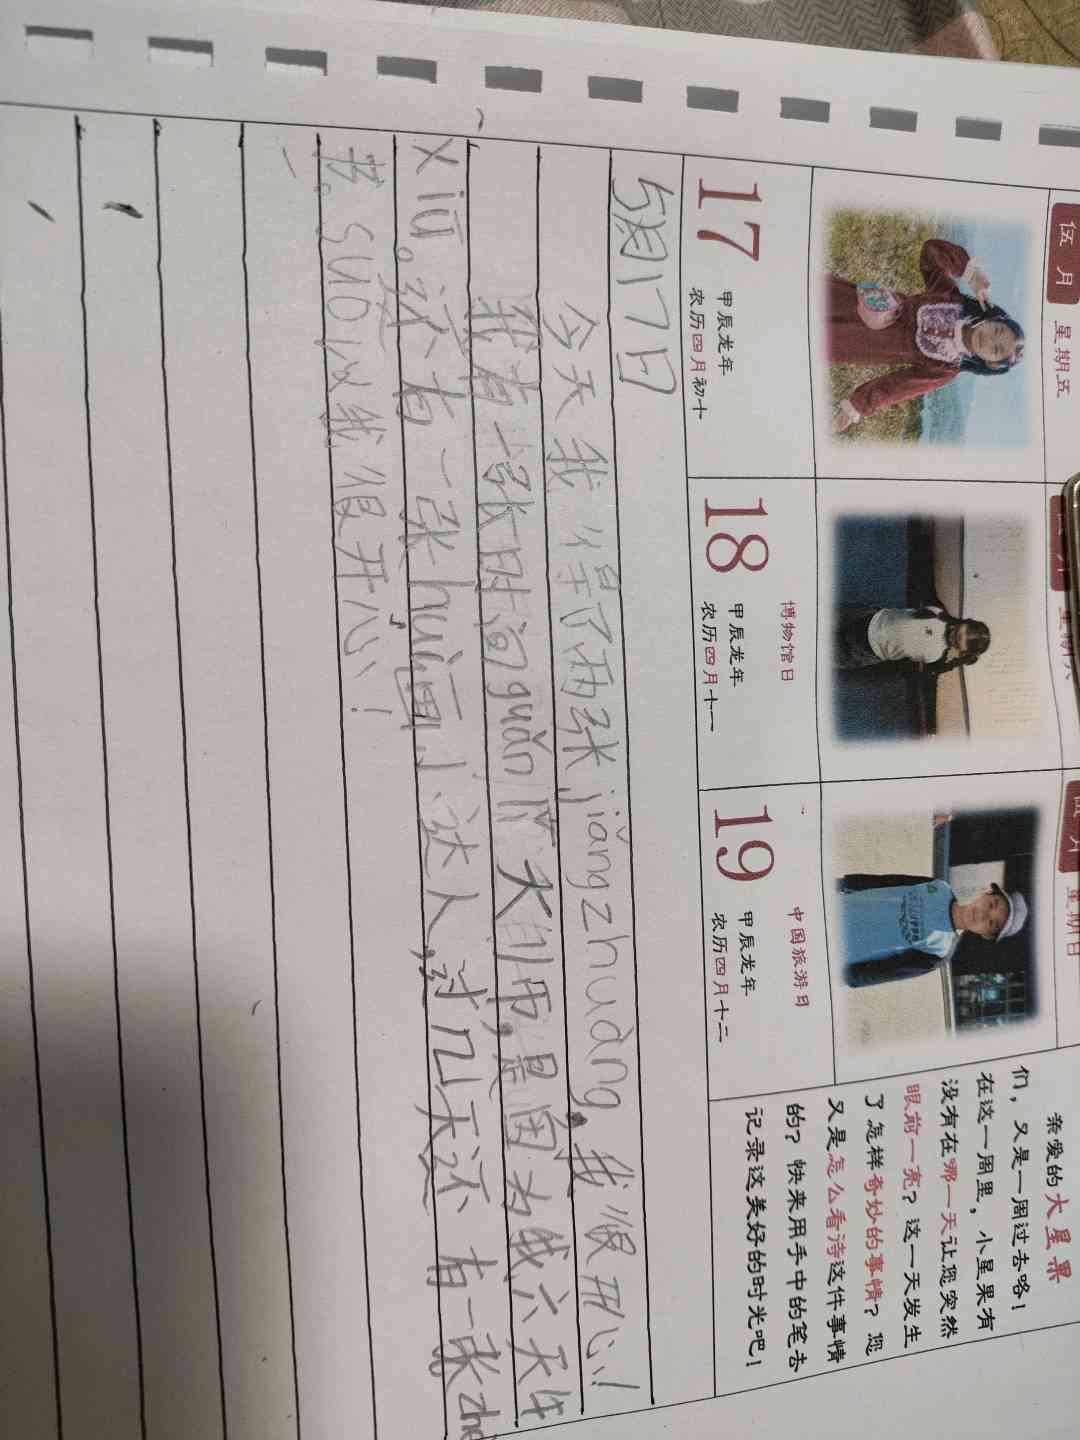 伍月 星期五
17
甲辰龙年
农历四月初十
18
博物馆日
甲辰龙年
农历四月十一
星期日
19
中国旅游日
甲辰龙年
农历四月十二
亲爱的大星果
们，又是一周过去咯！
在这一周里，小星果有
没有在哪一天让您突然
眼前一亮？这一天发生
了怎样奇妙的事情？您
又是怎么看待这件事情
的？快来用手中的笔去
记录这美好的时光吧！
5月17日
今天我得了两张jiǎngzhuàng，我很开心！
我有一张时间guǎn 大师，是因为我六天午
xiū。还有一张huì画小达人，过几天还有一张
书。suǒ以我很开心！